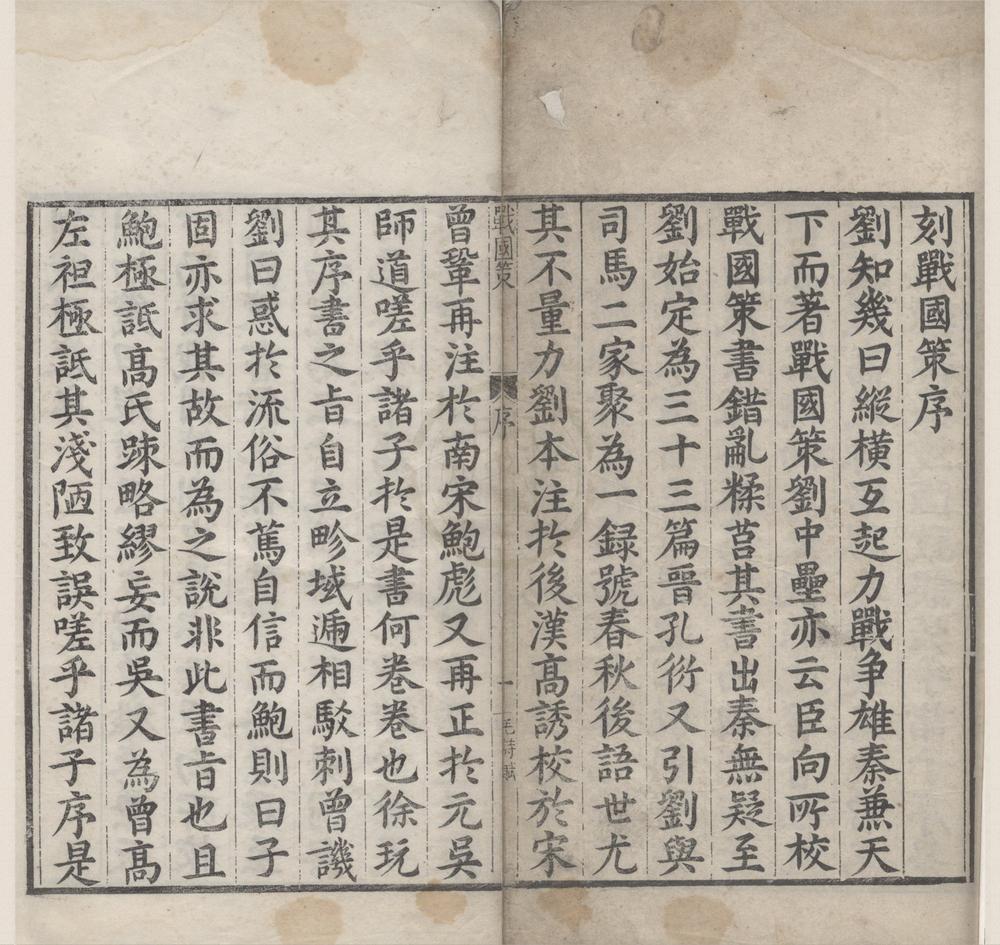 刻戰國策序
劉知幾曰縱橫互起力戰争雄秦兼天
下而著戰國策劉中壘亦云臣向所校
戰國策書錯亂糅莒其書出秦無疑至
劉始定為三十三篇晉孔衍又引劉與
司馬二家聚為一録號春秋後語世尤
其不量力劉本注於後漢高誘校於宋
戰國策
序
一
曾鞏再注於南宋鮑彪又再正於元吳
師道嗟乎諸子於是書何卷卷也徐玩
其序書之旨自立畛域逓相駁刺曾譏
劉曰惑於流俗不篤自信而鮑則曰子
固亦求其故而為之說非此書旨也且
鮑極詆高氏踈略繆妄而吳又為曾高
左袒極詆其淺陋致誤嗟乎諸子序是